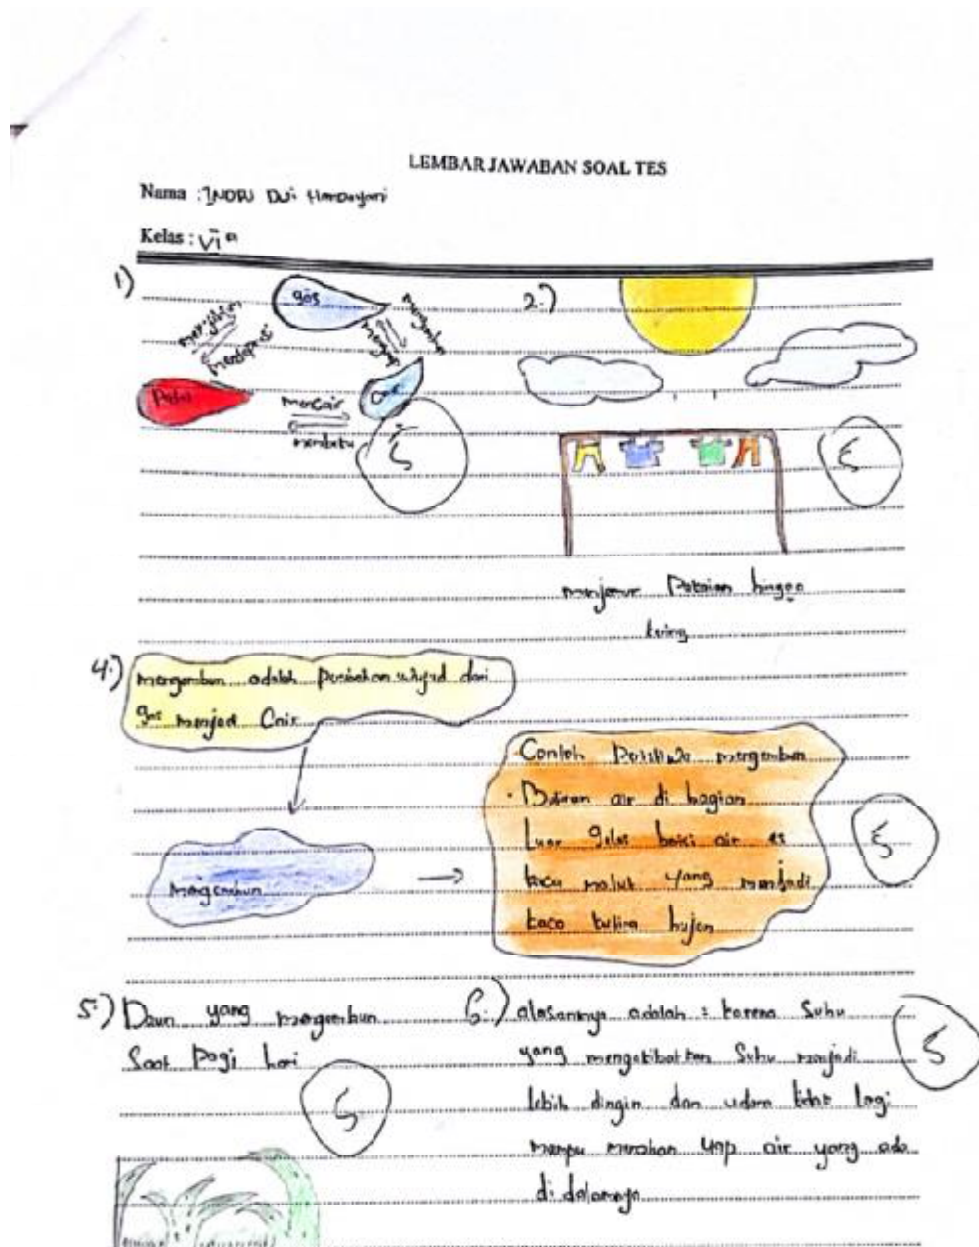 LEMBAR JAWABAN SOAL TES
Nama : Dwi
Kelas : VI a
1.)
gas
menyublim
mengembun
padat
cair
mencair
membeku
5
2.)
5
menjemur Pakaian hingga
kering
4.)
mengembun adalah perubahan wujud dari
gas menjadi Cair
mengembun
Contoh Peristiwa mengembun
• Butiran air di bagian
Luar gelas berisi air es
yang menjadi
kaca hujan
5
5.) Daun yang mengembun
Saat Pagi hari
5
6.) alasannya adalah : karena Suhu
yang mengakibatkan Suhu menjadi
lebih dingin dan udara tidak lagi
mampu menahan uap air yang ada
di dalamnya
5